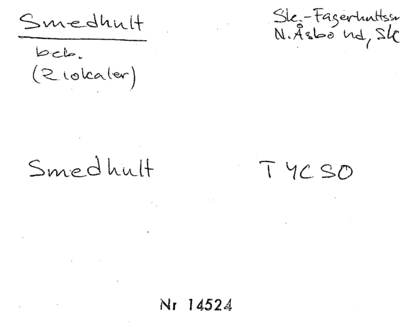 Smedhult
beb.
(2 lokaler)
Sk.-Fagerhults
N. Åsbo hd, Sk
Smedhult
TYCSO
Nr 14524